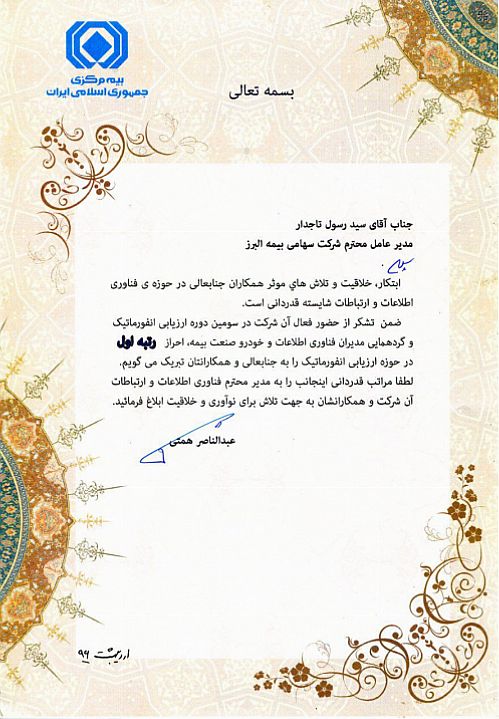 بیمه مرکزی
جمهوری اسلامی ایران
بسمه تعالی
جناب آقای سید رسول تاجدار
مدیر عامل محترم شرکت سهامی بیمه البرز
ابتکار، خلاقیت و تلاش هاي موثر همکاران جنابعالی در حوزه ی فناوری
اطلاعات و ارتباطات شایسته قدردانی است.
ضمن تشکر از حضور فعال آن شرکت در سومین دوره ارزیابی انفورماتیک
و گردهمایی مدیران فناوری اطلاعات و خودرو صنعت بیمه، احراز رتبه اول
در حوزه ارزیابی انفورماتیک را به جنابعالی و همکارانتان تبریک می گویم.
لطفا مراتب قدردانی اینجانب را به مدیر محترم فناوری اطلاعات و ارتباطات
آن شرکت و همکارانشان به جهت تلاش برای نوآوری و خلاقیت ابلاغ فرمائید.
عبدالناصر همتی
اردیبهشت